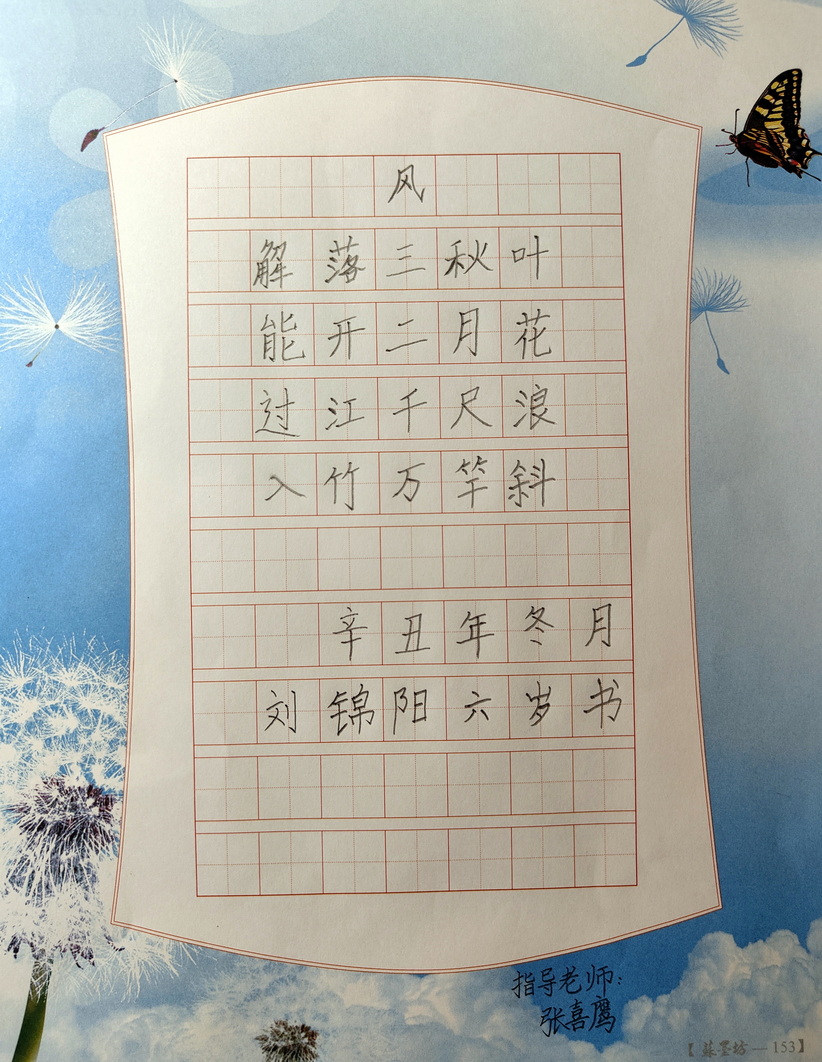 风
解落三秋叶
能开二月花
过江千尺浪
入竹万竿斜
辛丑年冬月
刘锦阳六岁书
指导老师:
张喜鹰
【苏墨坊—153】